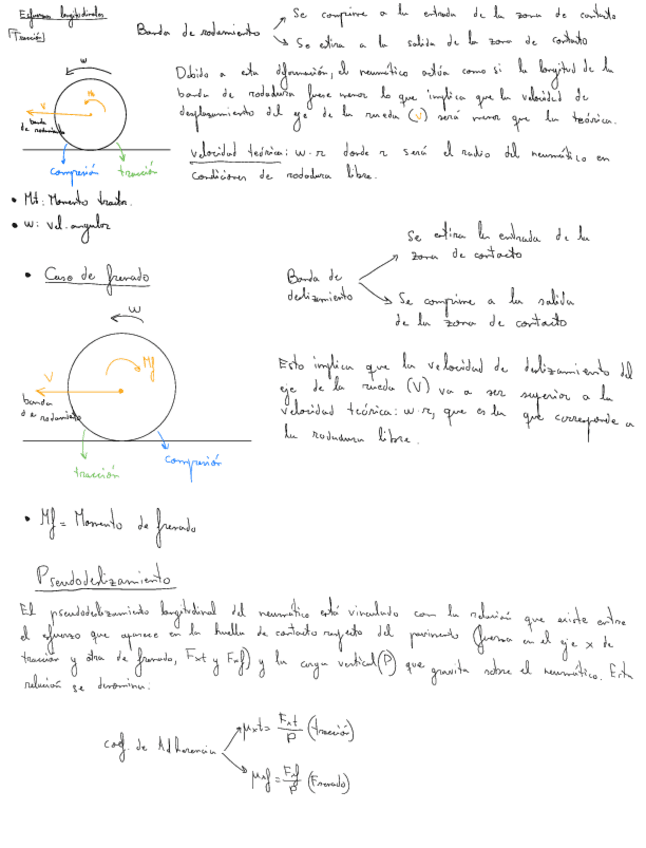 Esfuerzos longitudinales
[Tracción]
Banda de rodamiento
Se comprime a la entrada de la zona de contacto
Se estira a la salida de la zona de contacto
Debido a esta deformación, el neumático actúa como si la longitud de la
banda de rodadura fuese menor lo que implica que la velocidad de
desplazamiento del eje de la rueda (V) será menor que la teórica.
velocidad teórica: w.r donde r será el radio del neumático en
condiciones de rodadura libre.
w
V
Mt
banda
de rodamiento
compresión
tracción
• Mt: Momento tractor.
• w: vel. angular
• Caso de frenado
Banda de
deslizamiento
Se estira la entrada de la
zona de contacto
Se comprime a la salida
de la zona de contacto
w
V
Mf
banda
de rodamiento
tracción
compresión
Esto implica que la velocidad de deslizamiento del
eje de la rueda (V) va a ser superior a la
velocidad teórica: w.r, que es la que corresponde a
la rodadura libre.
• Mf = Momento de frenado
Pseudodeslizamiento
El pseudodeslizamiento longitudinal del neumático está vinculado con la relación que existe entre
el esfuerzo que aparece en la huella de contacto respecto del pavimento (fuerza en el eje x de
tracción y otra de frenado, Fxt y Fxf) y la carga vertical (P) que gravita sobre el neumático. Esta
relación se denomina:
coef. de Adherencia
μxt = Fxt/P (tracción)
μxf = Fxf/P (Frenado)